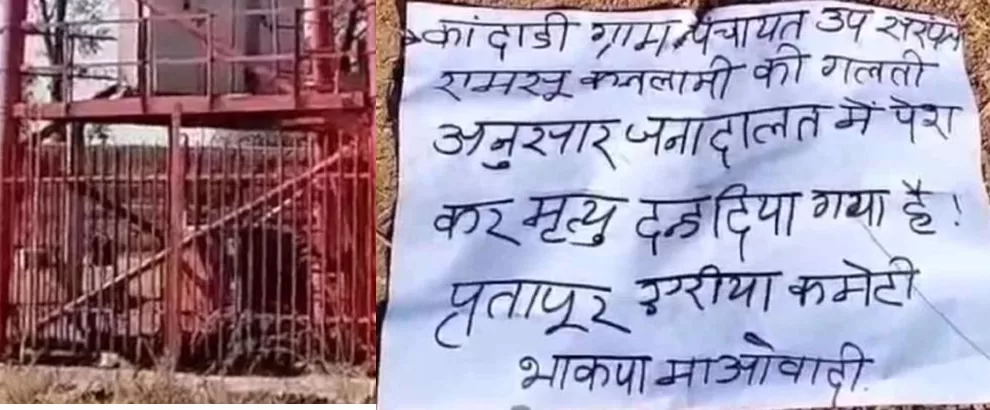 कांदाडी ग्राम पंचायत उप सरपंच
रामसू कतलामी की गलती
अनुसार जनादालत में पेश
कर मृत्यु दन्ड दिया गया है!
प्रतापूर एरीया कमेटी
भाकपा माओवादी.